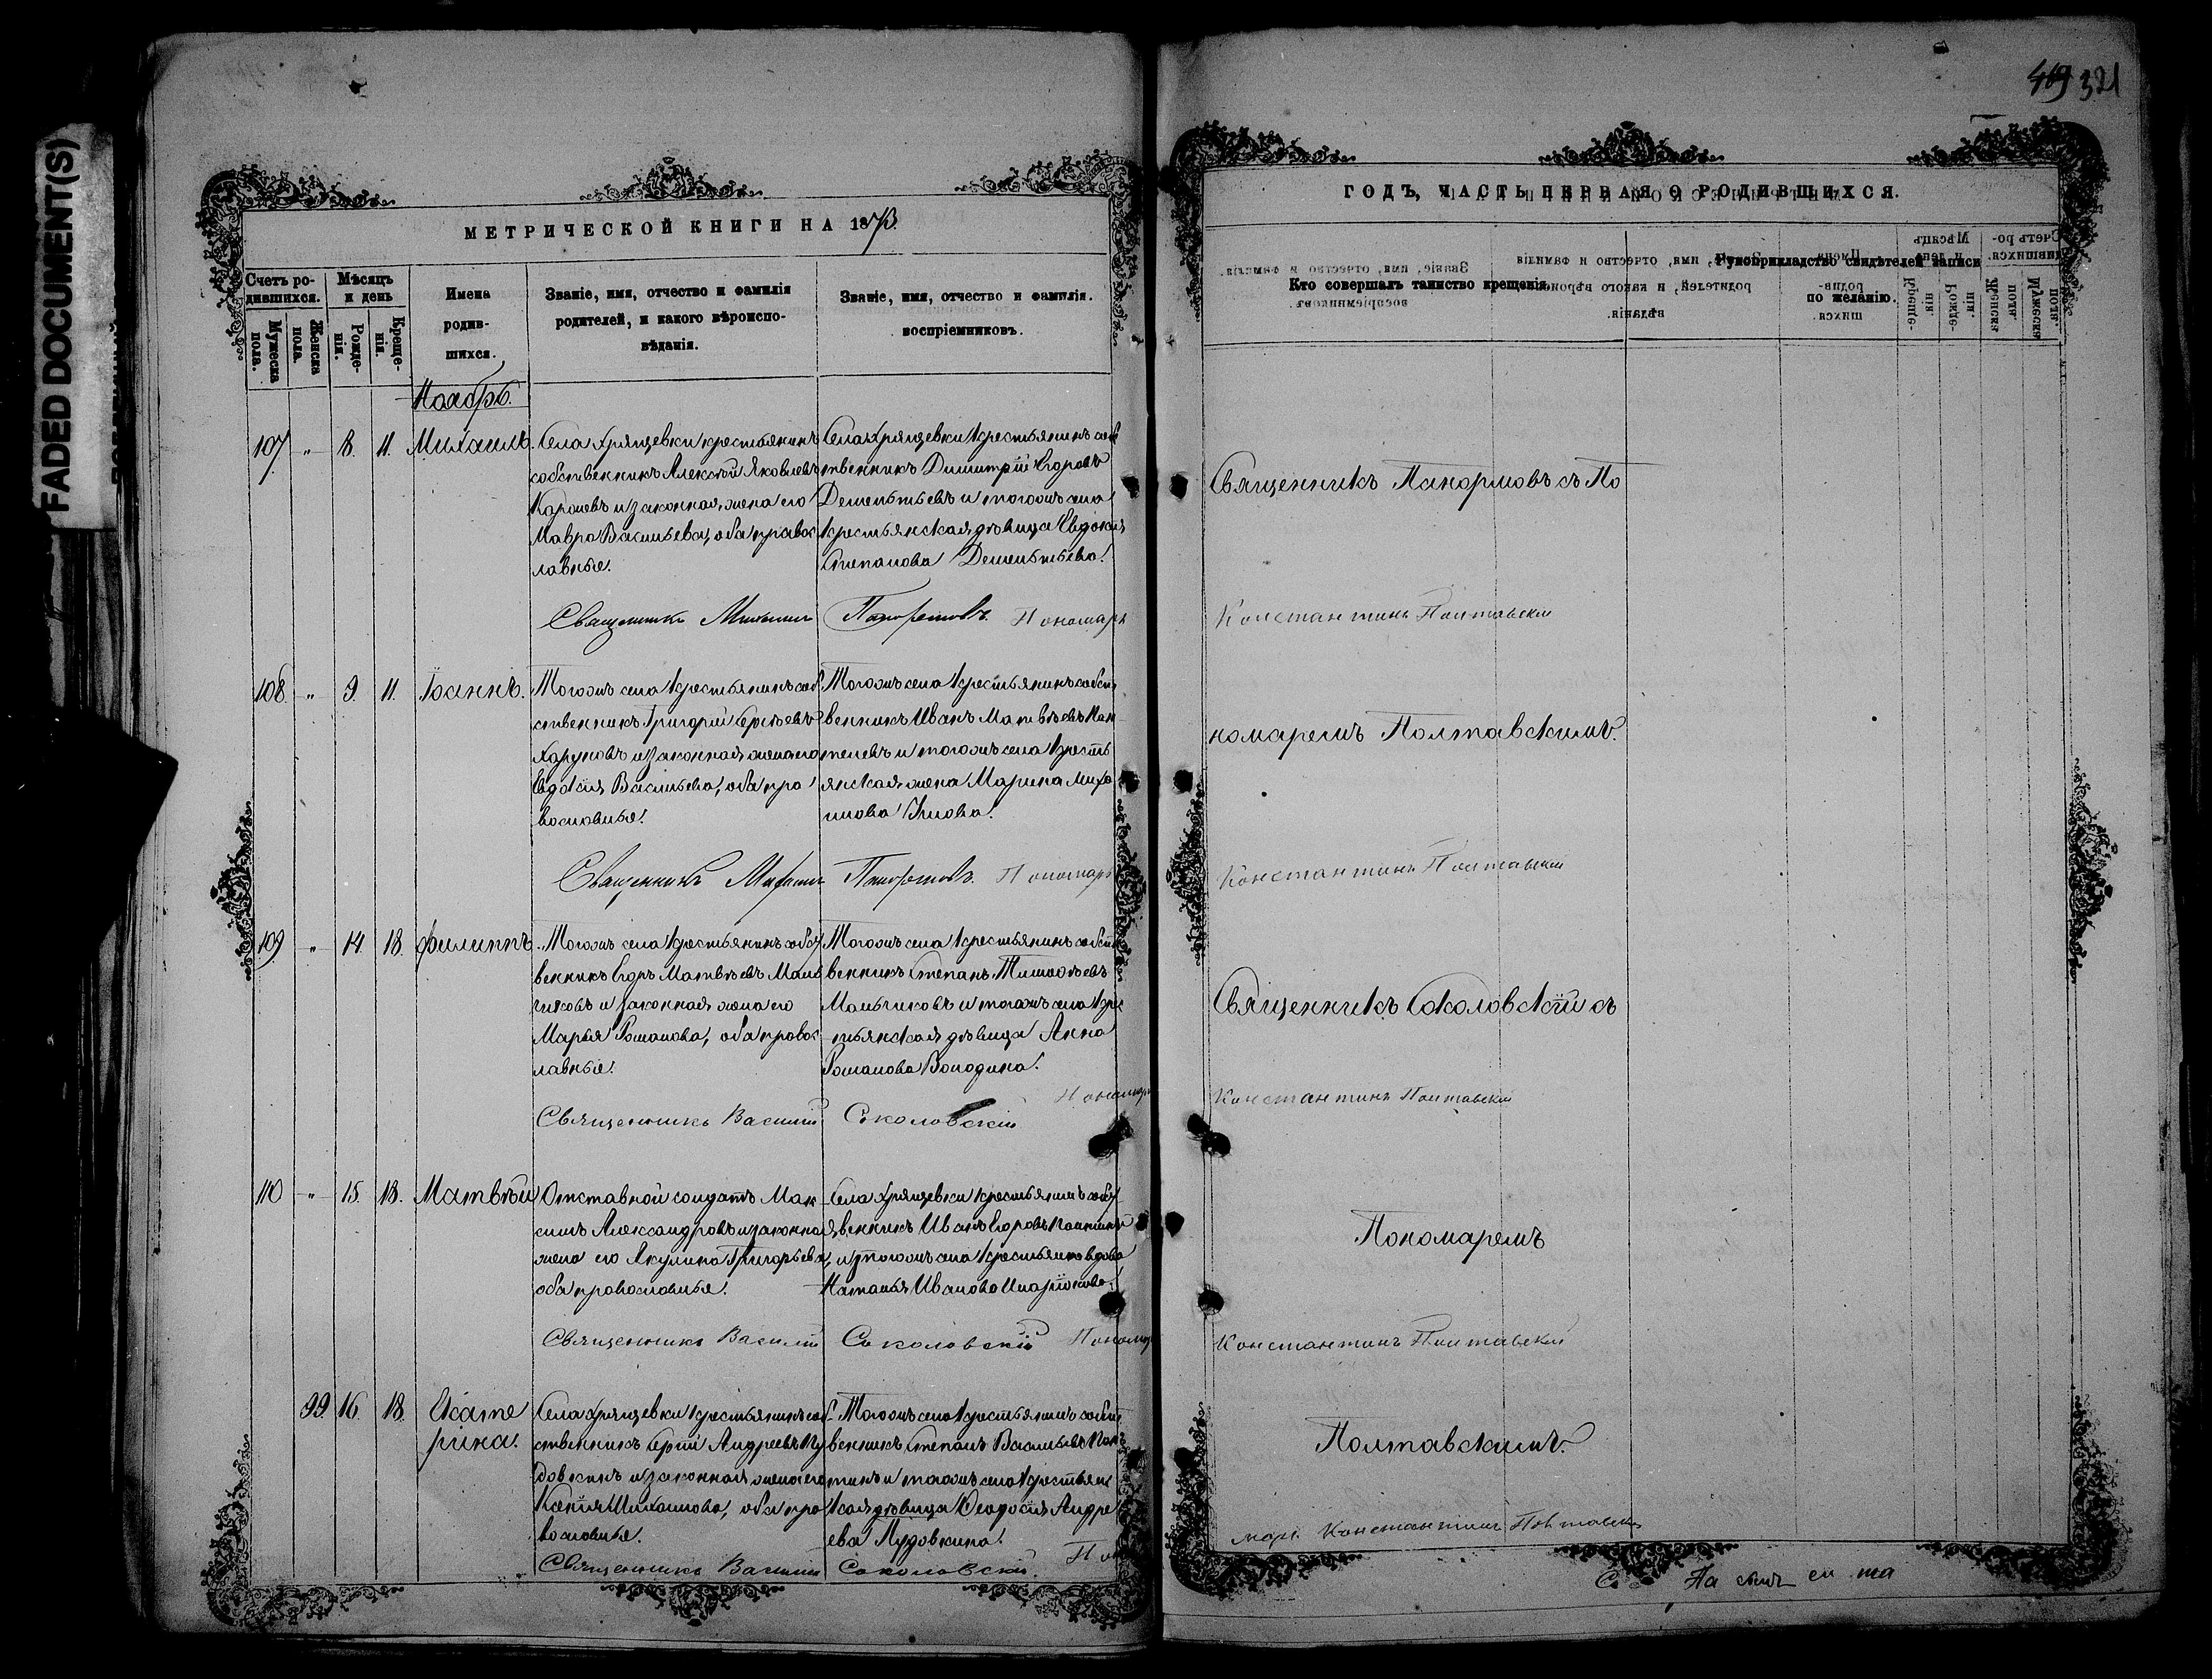 FADED DOCUMENT(S)
МЕТРИЧЕСКОЙ КНИГИ НА 1873.
Счетъ ро-
дившихся.
Мужеска
пола.
Женска
пола.
Мѣсяцъ
и день
Рожде-
нія.
Креще-
нія.
Имена
родив-
шихся.
Званіе, имя, отчество и фамилія
родителей, и какого вѣроиспо-
вѣданія.
Званіе, имя, отчество и фамилія.
воспріемниковъ.
Ноябрь.
107 " 8. 11. Михаилъ.
Села Хрящевки крестьянинъ
собственникъ Алексѣй Яковлевъ
и законная жена его
Мавра Васильева, оба правос
лавные.
Села Хрящевки крестьянинъ собс
твенникъ Димитрій Егоровъ
Дементьевъ и тогожъ села
крестьянская дѣвица Евдокія
Степанова Дементьева.
Священникъ Михаилъ Панормовъ. Пономарь
108. " 9. 11. Іоаннъ.
Тогожъ села крестьянинъ соб
ственникъ Григорій Сергѣевъ
и законная жена его
Евдокія Васильева, оба пра
вославные.
Тогожъ села крестьянинъ собст
венникъ Иванъ Матвѣевъ Пан
телевъ и тогожъ села кресть
янская жена Марина Миха
илова
Священникъ Михаилъ Панормовъ. Пономарь
109. " 14. 18. Филиппъ.
Тогожъ села крестьянинъ собст
венникъ Егоръ Матвѣевъ Маль
чиковъ и законная жена его
Марья Романова, оба правос
лавные.
Тогожъ села крестьянинъ собст
венникъ Степанъ Тимофѣевъ
Мальчиковъ и тогожъ села крес
тьянская дѣвица Анна
Романова Володина.
Пономарь
Священникъ Василій Соколовскій
110 " 15. 18. Матвѣй
Отставной солдатъ Мак
симъ Александровъ и законная
жена его Акулина Григорьева,
оба православные.
Села Хрящевки крестьянинъ собст
венникъ Иванъ Егоровъ
и тогожъ села крестьянка вдова
Наталья Иванова
Священникъ Василій Соколовскій Пономарь
99. 16. 18. Екате
рина.
Села Хрящевки крестьянинъ соб
ственникъ Сергій Андреевъ Пу
довкинъ и законная жена его
Ксенія Михаилова, оба пра
вославные.
Тогожъ села крестьянинъ собст
венникъ Степанъ Васильевъ
и тогожъ села крестьянс
кая дѣвица Феодосія Андре
ева Пудовкина.
Священникъ Василій Соколовскій. Поно
469 321
ГОДЪ, ЧАСТЬ ПЕРВАЯ О РОДИВШИХСЯ.
Кто совершалъ таинство крещенія.
Рукоприкладство свидѣтелей записи
по желанію.
Священникъ Панормовъ съ По
Константинъ Полтавскій
номаремъ Полтавскимъ.
Константинъ Полтавскій
Священникъ Соколовскій съ
Константинъ Полтавскій
Пономаремъ
Константинъ Полтавскій
Полтавскимъ.
марь Константинъ Полтавскій